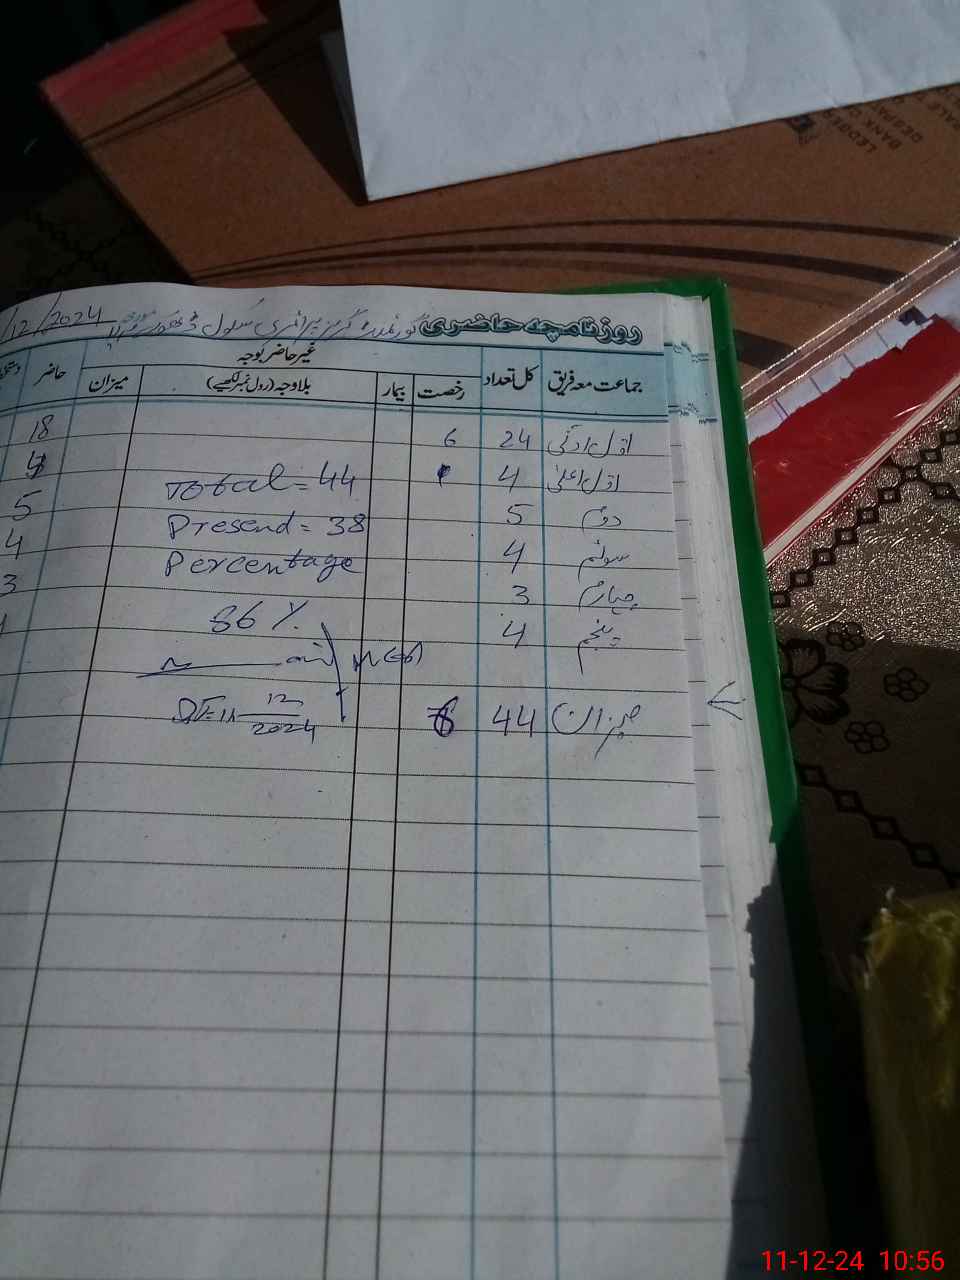 LEDGER
BANK
DESPAT
روزنامچہ حاضری گورنمنٹ گرلز پرائمری سکول /12/2024
جماعت معہ فریق کل تعداد غیر حاضر بوجہ حاضر
رخصت بیمار بلاوجہ (رول نمبر لکھیے) میزان
اول ادنیٰ 24 6 18
اول اعلیٰ 4 4
Total = 44
دوم 5 5
Presend = 38
سوئم 4 4
Percentage
چہارم 3 3
86 %
پنجم 4
میزان 44 6
12
2024
11-12-24 10:56